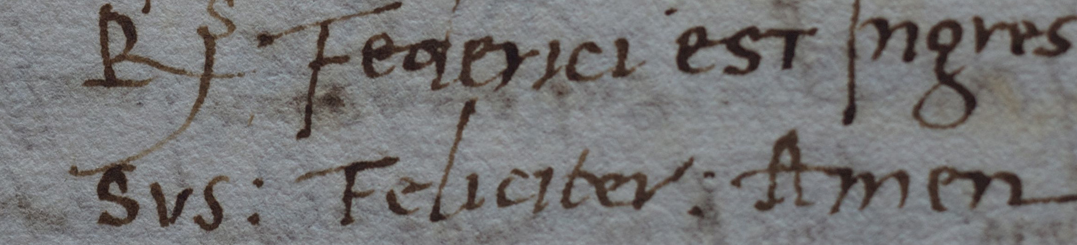 R͞js. Federici est Ingres
sus: Feliciter: Amen